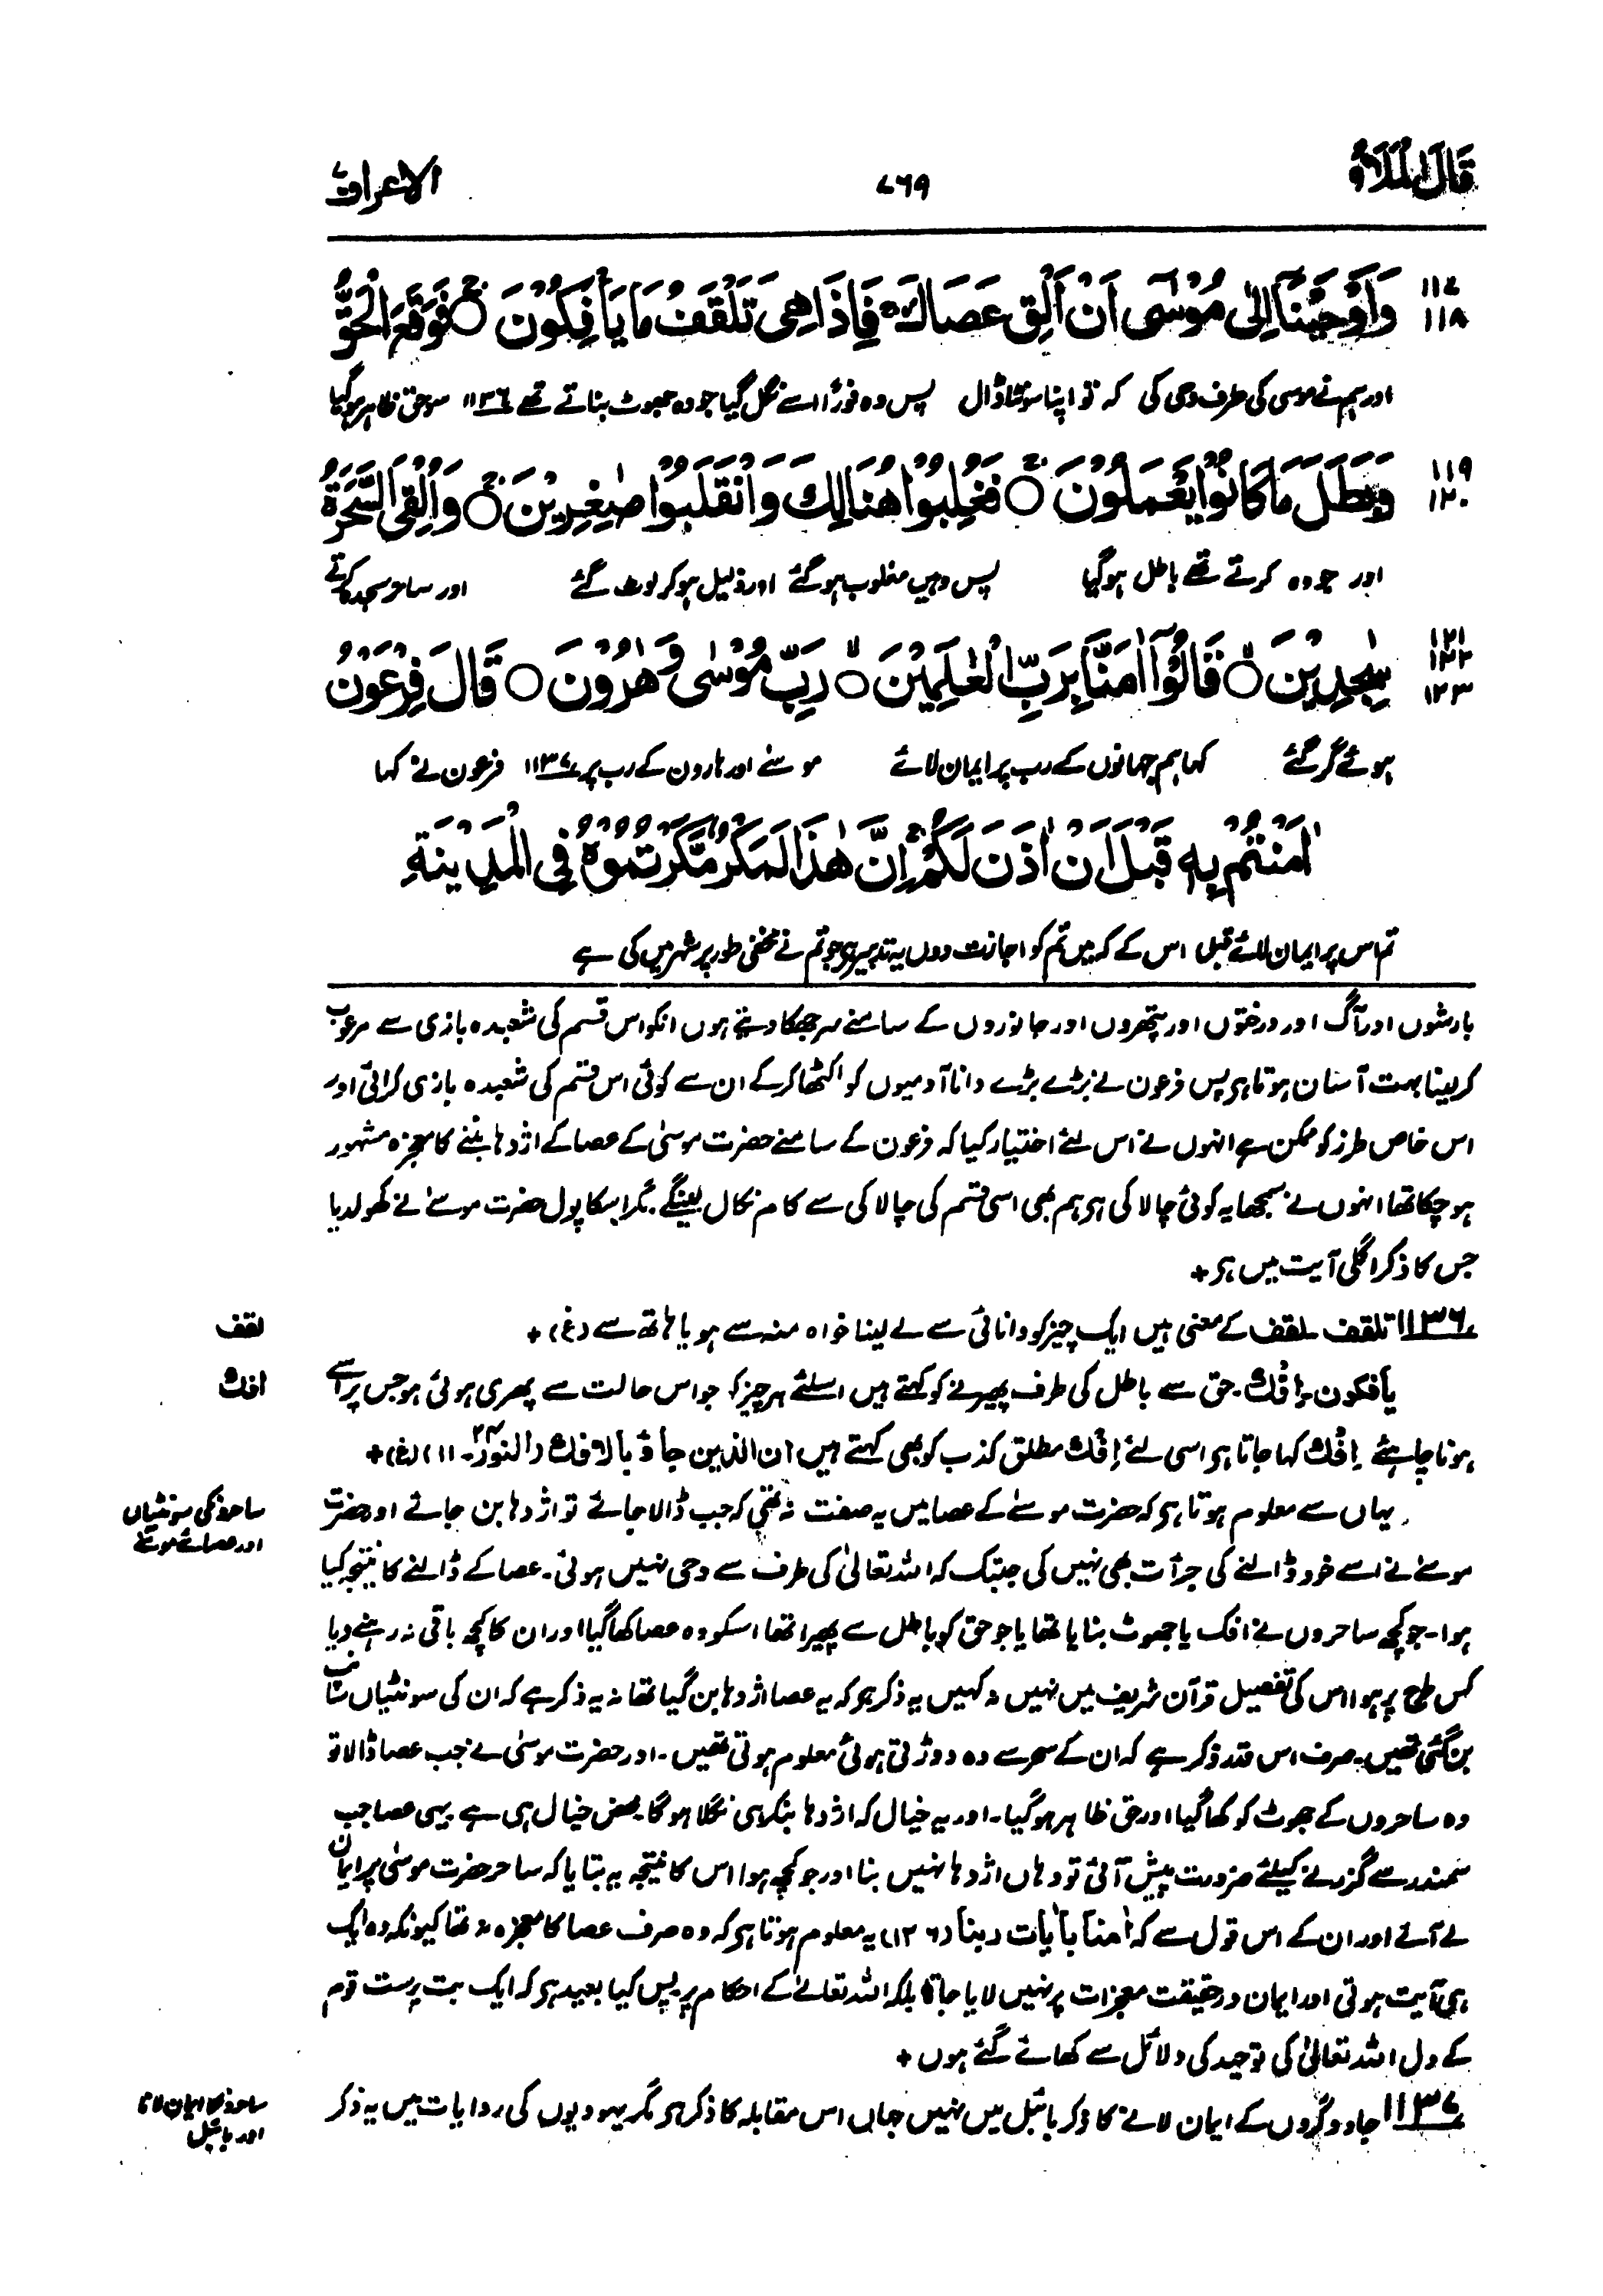 قَالَ الْمَلَاُ ۷۶۹ الاعراف ۷
۱۱۷ وَاَوْحَيْنَآ اِلٰى مُوْسٰٓى اَنْ اَلْقِ عَصَاكَ ۚ فَاِذَا هِىَ تَلْقَفُ مَا يَأْفِكُوْنَ ۝ فَوَقَعَ الْحَقُّ
۱۱۸
اور ہم نے موسیٰ کی طرف وحی کی کہ تو اپنا سونٹا ڈال پس وہ فوراً اسے نگل گیا جو وہ جھوٹ بناتے تھے ۱۱۳۶ سو حق ظاہر ہو گیا
۱۱۹ وَبَطَلَ مَا كَانُوْا يَعْمَلُوْنَ ۝ فَغُلِبُوْا هُنَالِكَ وَانْقَلَبُوْا صٰغِرِيْنَ ۝ وَاُلْقِىَ السَّحَرَةُ
۱۲۰
اور جو وہ کرتے تھے باطل ہو گیا پس وہیں مغلوب ہو گئے اور ذلیل ہو کر لوٹ گئے اور ساحر سجدہ کرتے
۱۲۱ سٰجِدِيْنَ ۝ قَالُوْٓا اٰمَنَّا بِرَبِّ الْعٰلَمِيْنَ ۝ رَبِّ مُوْسٰى وَهٰرُوْنَ ۝ قَالَ فِرْعَوْنُ
۱۲۲
۱۲۳
ہوئے گر گئے کہا ہم جہانوں کے رب پر ایمان لائے موسےٰ اور ہارون کے رب پر ۱۱۳۷ فرعون نے کہا
اٰمَنْتُمْ بِهٖ قَبْلَ اَنْ اٰذَنَ لَكُمْ ۚ اِنَّ هٰذَا لَمَكْرٌ مَّكَرْتُمُوْهُ فِى الْمَدِيْنَةِ
تم اس پر ایمان لائے قبل اس کے کہ میں تم کو اجازت دوں یہ تدبیر ہی جو تم نے مخفی طور پر شہر میں کی ہے
بارشوں اور آگ اور درختوں اور پتھروں اور جانوروں کے سامنے سر جھکا دیتے ہوں انکو اس قسم کی شعبدہ بازی سے مرعوب
کر لینا بہت آسان ہوتا ہی پس فرعون نے بڑے بڑے دانا آدمیوں کو اکٹھا کر کے ان سے کوئی اس قسم کی شعبدہ بازی کرائی اور
اس خاص طرز کو ممکن ہے انہوں نے اس لئے اختیار کیا کہ فرعون کے سامنے حضرت موسیٰ کے عصا کے اژدہا بننے کا معجزہ مشہور
ہو چکا تھا انہوں نے سمجھا یہ کوئی چالاکی ہی ہم بھی اسی قسم کی چالاکی سے کام نکال لینگے۔ مگر اسکا پول حضرت موسےٰ نے کھولدیا
جس کا ذکر اگلی آیت میں ہی +
۱۱۳۶ تلقف۔ لقف کے معنی ہیں ایک چیز کو دانائی سے لے لینا خواہ منہ سے ہو یا ہاتھ سے (غ) +
لقف
یأفکون۔ اِفْك۔ حق سے باطل کی طرف پھیرنے کو کہتے ہیں اسلئے ہر چیز کو جو اس حالت سے پھری ہوئی ہو جس پر اسے
افك
ہونا چاہئے اِفْك کہا جاتا ہی اسی لئے اِفْك مطلق کذب کو بھی کہتے ہیں ان الذین جاؤ بالافك (النور ۲۴۔ ۱۱) (غ) +
یہاں سے معلوم ہوتا ہی کہ حضرت موسےٰ کے عصا میں یہ صفت نہ تھی کہ جب ڈالا جائے تو اژدہا بن جائے اور حضرت
ساحرونکی سونٹیاں
اور عصائے موسےٰ
موسےٰ نے اسے خود ڈالنے کی جرأت بھی نہیں کی جبتک کہ اللہ تعالیٰ کی طرف سے وحی نہیں ہوئی۔ عصا کے ڈالنے کا نتیجہ کیا
ہوا۔ جو کچھ ساحروں نے افک یا جھوٹ بنایا تھا یا جو حق کو باطل سے پھیرا تھا اسکو وہ عصا کھا گیا اور ان کا کچھ باقی نہ رہنے دیا
کس طرح پر ہوا اس کی تفصیل قرآن شریف میں نہیں نہ کہیں یہ ذکر ہی کہ یہ عصا اژدہا بن گیا تھا نہ یہ ذکر ہے کہ ان کی سونٹیاں سانپ
بن گئی تھیں۔ صرف اس قدر ذکر ہے کہ ان کے سحر سے وہ دوڑتی ہوئی معلوم ہوتی تھیں۔ اور حضرت موسیٰ نے جب عصا ڈالا تو
وہ ساحروں کے جھوٹ کو کھا گیا اور حق ظاہر ہو گیا۔ اور یہ خیال کہ اژدہا بنکر ہی نگلا ہوگا محض خیال ہی ہے یہی عصا جب
سمندر سے گزرنے کیلئے ضرورت پیش آئی تو وہاں اژدہا نہیں بنا اور جو کچھ ہوا اس کا نتیجہ یہ بتایا کہ ساحر حضرت موسیٰ پر ایمان
لے آئے اور ان کے اس قول سے کہ اٰمنا باٰیات ربنا (۱۲۶) یہ معلوم ہوتا ہی کہ وہ صرف عصا کا معجزہ نہ تھا کیونکہ وہ ایک
ہی آیت ہوتی اور ایمان درحقیقت معجزات پر نہیں لایا جاتا بلکہ اللہ تعالےٰ کے احکام پر۔ پس کیا بعید ہی کہ ایک بت پرست قوم
کے دل اللہ تعالیٰ کی توحید کی دلائل سے کھائے گئے ہوں +
۱۱۳۷ جادوگروں کے ایمان لانے کا ذکر بائبل میں نہیں جہاں اس مقابلہ کا ذکر ہی مگر یہودیوں کی روایات میں یہ ذکر
ساحرونکا ایمان لانا
اور بائبل